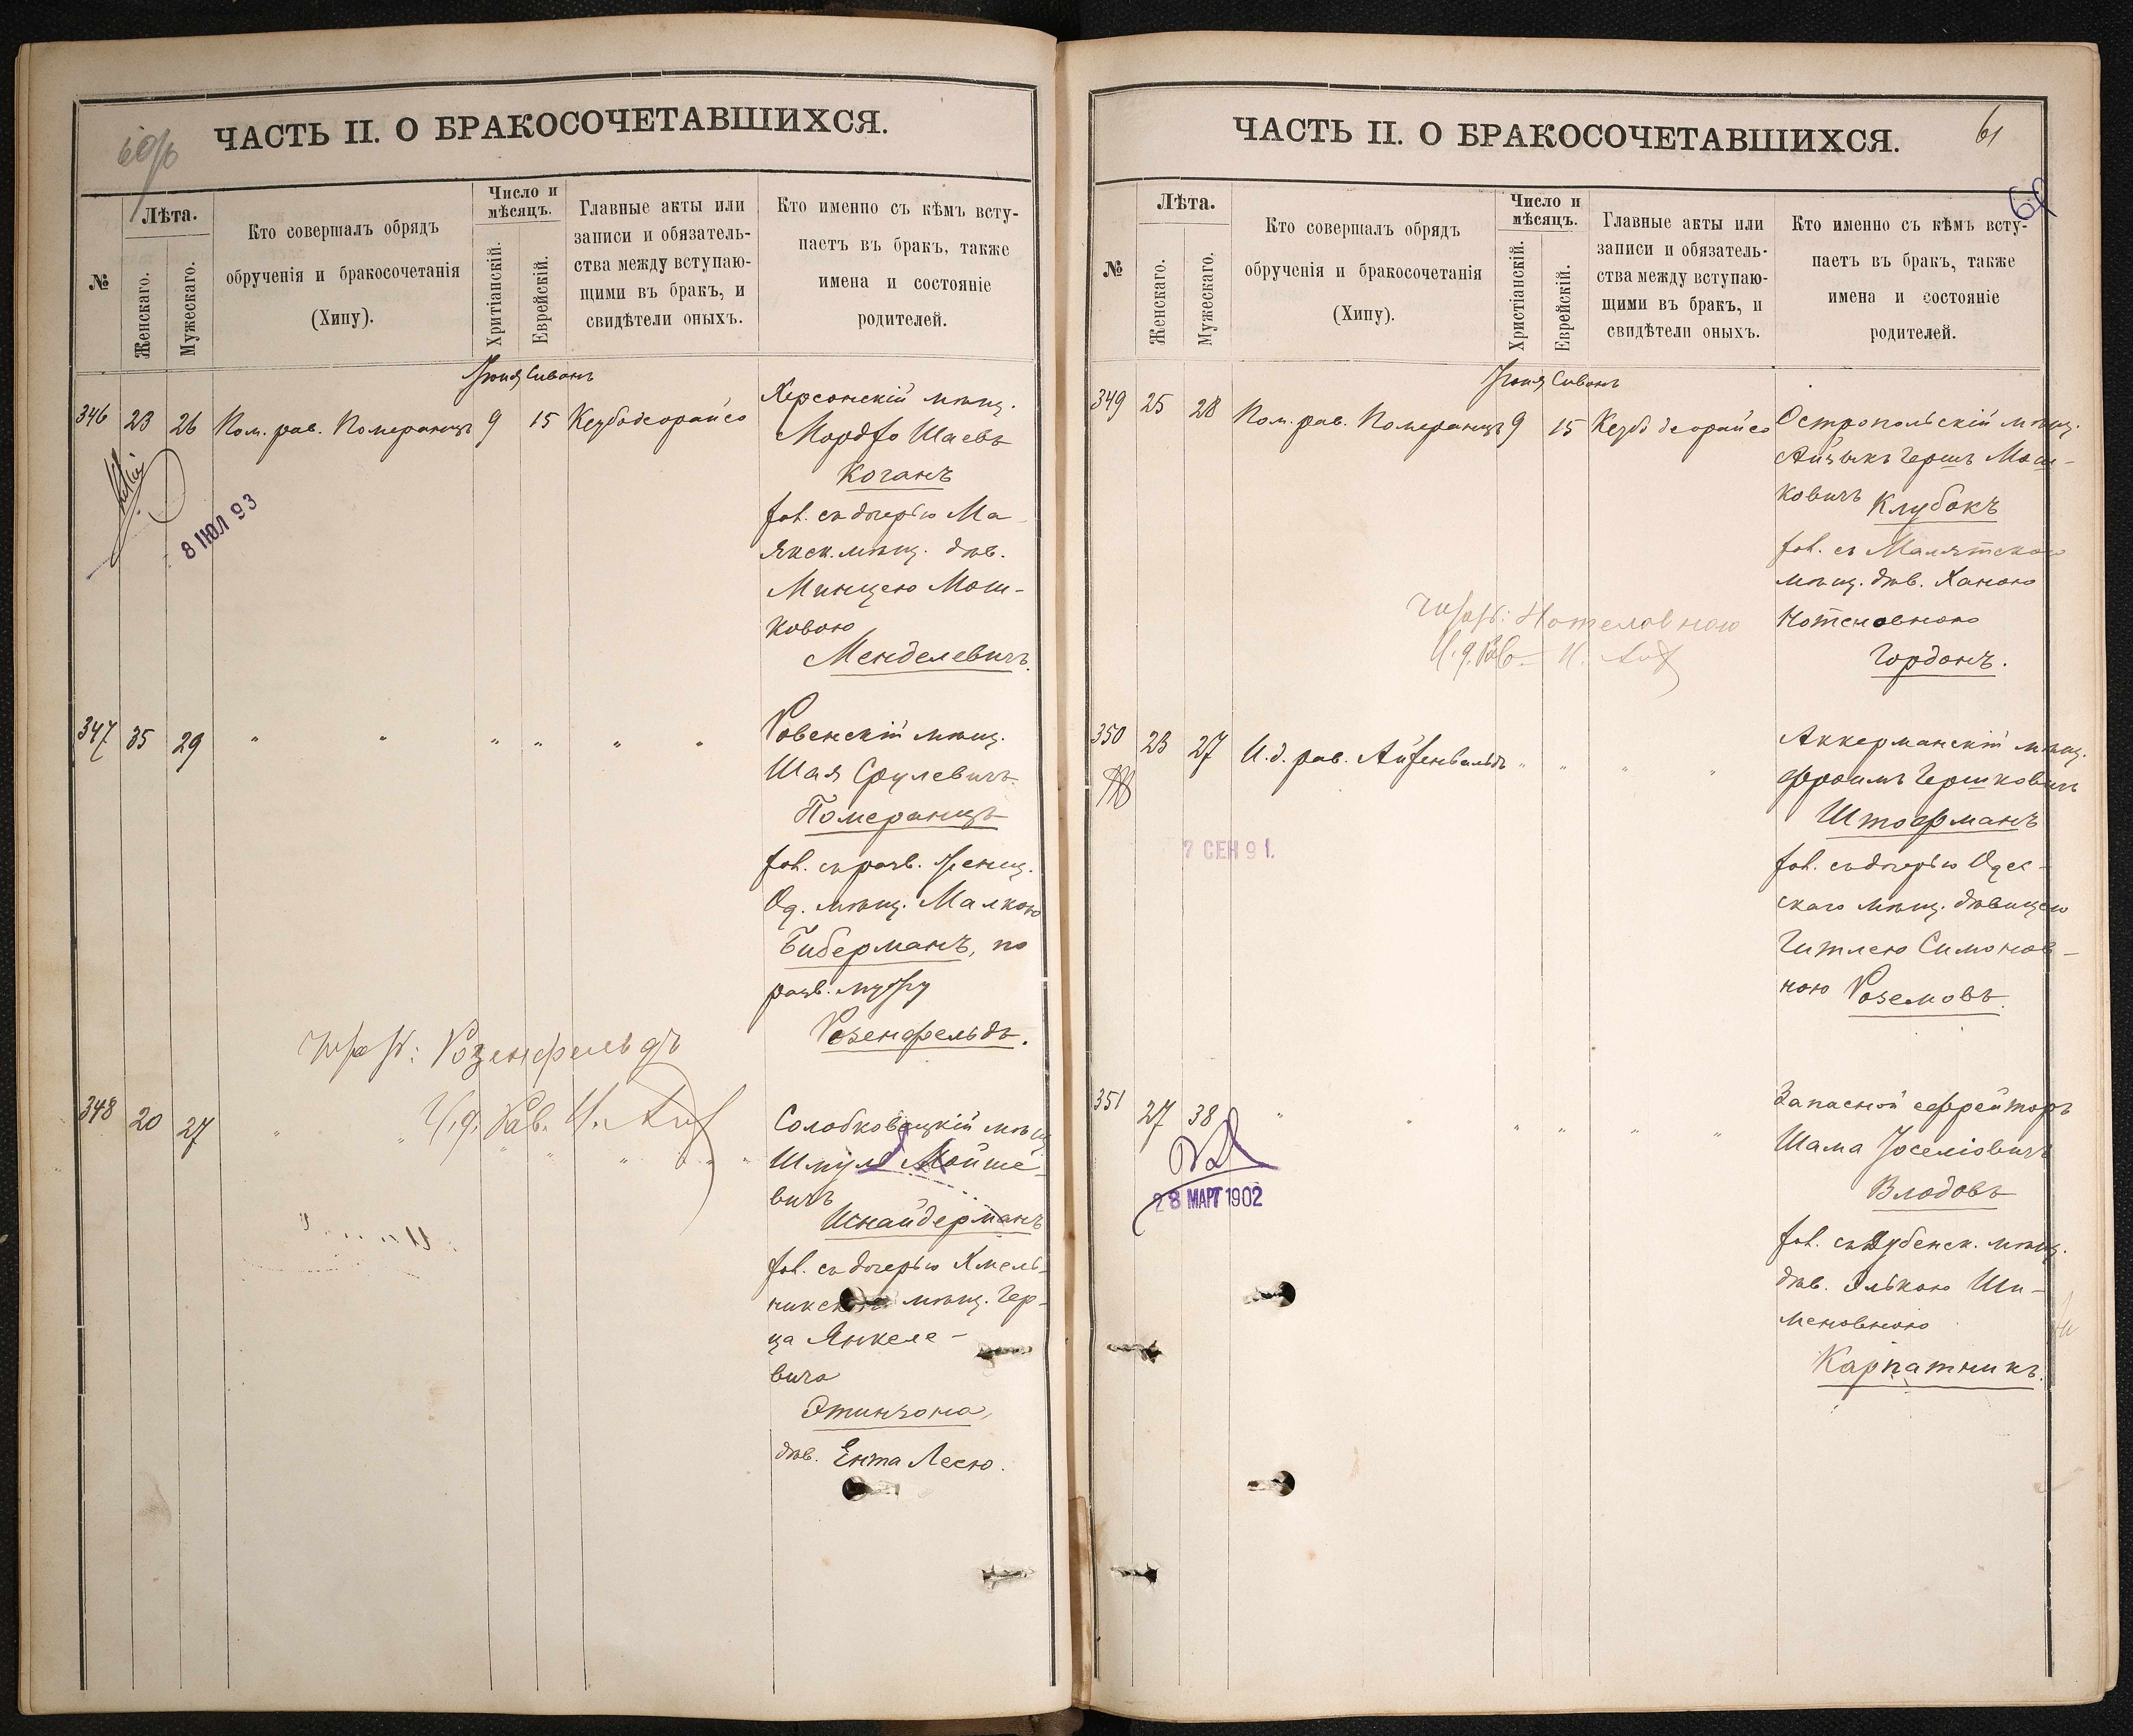 60/б
ЧАСТЬ II. О БРАКОСОЧЕТАВШИХСЯ.
№
Лѣта.
Женскаго.
Мужескаго.
Кто совершалъ обрядъ
обрученія и бракосочетанія
(Хипу).
Число и
мѣсяцъ.
Хритіанскій.
Еврейскій.
Главные акты или
записи и обязатель-
ства между вступаю-
щими въ бракъ, и
свидѣтели оныхъ.
Кто именно съ кѣмъ всту-
паетъ въ бракъ, также
имена и состояніе
родителей.
Іюня Сивонъ
346 23 26 Пом. рав. Померанцъ 9 15 Кеубодеорайсо
Херсонскій мѣщ.
Мордко Шаевъ
Коганъ
съ дочерью Ма-
якск. мѣщ. дѣв.
Минцею Мош-
ковою
Менделевичъ.
8 ІЮЛ 93
347 35 29 " " " " " "
Ровенскій мѣщ.
Шая Срулевичъ
Померанцъ
съ разв. женщ.
Од. мѣщ. Малкою
Биберманъ, по
разв. мужу
Розенфельдъ.
Розенфельдъ
И.д. Рав.
348 20 27 " " " " " "
Солобковецкій мѣщ
Шмуль Мойше-
вичъ
Шнайдерманъ
съ дочерью Хмель-
мѣщ. Гер-
ца Янкеле-
вича
Этингона,
дѣв. Ента Лесю.
61
ЧАСТЬ II. О БРАКОСОЧЕТАВШИХСЯ.
№
Лѣта.
Женскаго.
Мужескаго.
Кто совершалъ обрядъ
обрученія и бракосочетанія
(Хипу).
Число и
мѣсяцъ.
Христіанскій.
Еврейскій.
Главные акты или
записи и обязатель-
ства между вступаю-
щими въ бракъ, и
свидѣтели оныхъ.
Кто именно съ кѣмъ всту-
паетъ въ бракъ, также
имена и состояніе
родителей.
Іюня Сивонъ
349 25 28 Пом. рав. Померанцъ 9 15 Кеубодеорайсо
Остропольскій мѣщ.
Айзыкъ Гершъ Мош-
ковичъ Клубокъ
съ Малятскою
мѣщ. дѣв. Ханою
Нотеловною
Гордонъ.
Нотеловною
И.д. Рав.
350 23 27 И.д. рав. Айзенвальдъ " " " "
Аккерманскій мѣщ.
Фроимъ Гершковичъ
Штофманъ
съ дочерью Одес-
скаго мѣщ. дѣвицею
Гитлею Симонов-
ною Роземовъ.
7 СЕН 91.
351 27 38 " " " " " "
Запасной ефрейторъ
Шама Іоселіовичъ
Влодовъ
съ Дубенск. мѣщ.
дѣв. Элькою Ши-
меновною
Карпатникъ.
28 МАРТ 1902